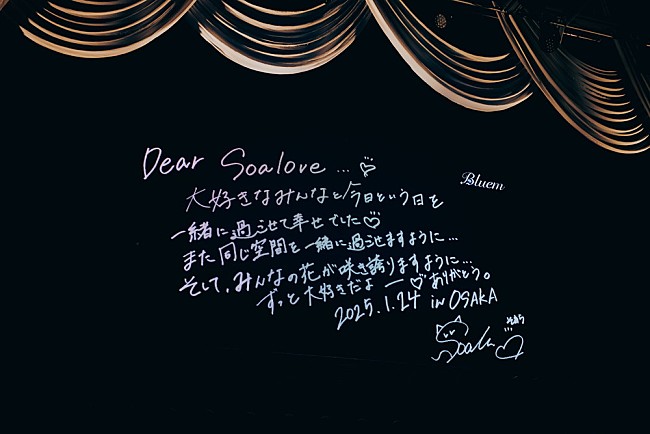 Dear Soalove...♡
Bluem
大好きなみんなと今日という日を
一緒に過ごせて幸せでした♡
また同じ空間を一緒に過ごせますように...
そして、みんなの花が咲き誇りますように...
ずっと大好きだよー♡ありがとう。
2025.1.24 in OSAKA
そあら